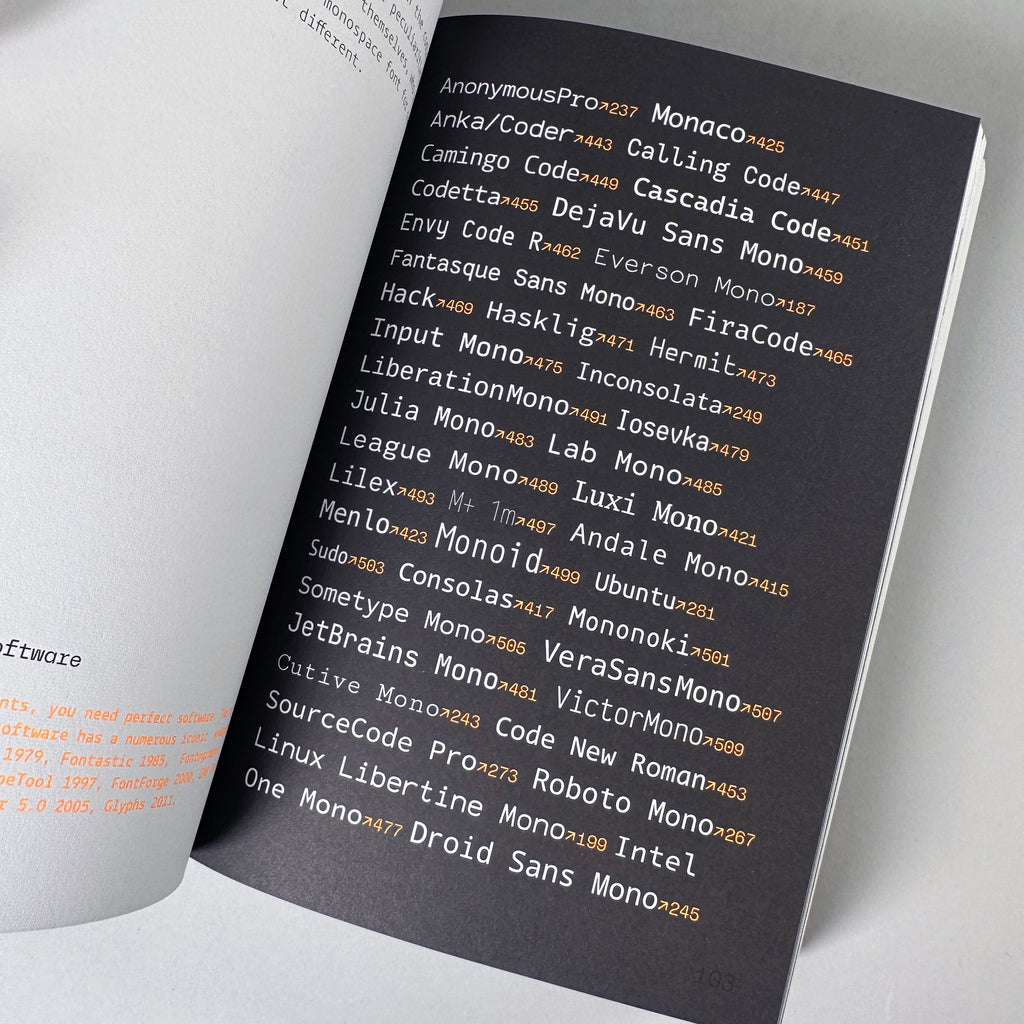 n the
peculiari
themselves, and
monospace font for
different.
oftware
nts, you need perfect software
oftware has a numerous iconic
1979, Fontastic 1985,
peTool 1997, FontForge 2000,
r 5.0 2005, Glyphs 2011.
AnonymousPro↗237 Monaco↗425
Anka/Coder↗443 Calling Code↗447
Camingo Code↗449 Cascadia Code↗451
Codetta↗455 DejaVu Sans Mono↗459
Envy Code R↗462 Everson Mono↗187
Fantasque Sans Mono↗463 FiraCode↗465
Hack↗469 Hasklig↗471 Hermit↗473
Input Mono↗475 Inconsolata↗249
LiberationMono↗491 Iosevka↗479
Julia Mono↗483 Lab Mono↗485
League Mono↗489 Luxi Mono↗421
Lilex↗493 M+ 1m↗497 Andale Mono↗415
Menlo↗423 Monoid↗499 Ubuntu↗281
Sudo↗503 Consolas↗417 Mononoki↗501
Sometype Mono↗505 VeraSansMono↗507
JetBrains Mono↗481 VictorMono↗509
Cutive Mono↗243 Code New Roman↗453
SourceCode Pro↗273 Roboto Mono↗267
Linux Libertine Mono↗199 Intel
One Mono↗477 Droid Sans Mono↗245
103